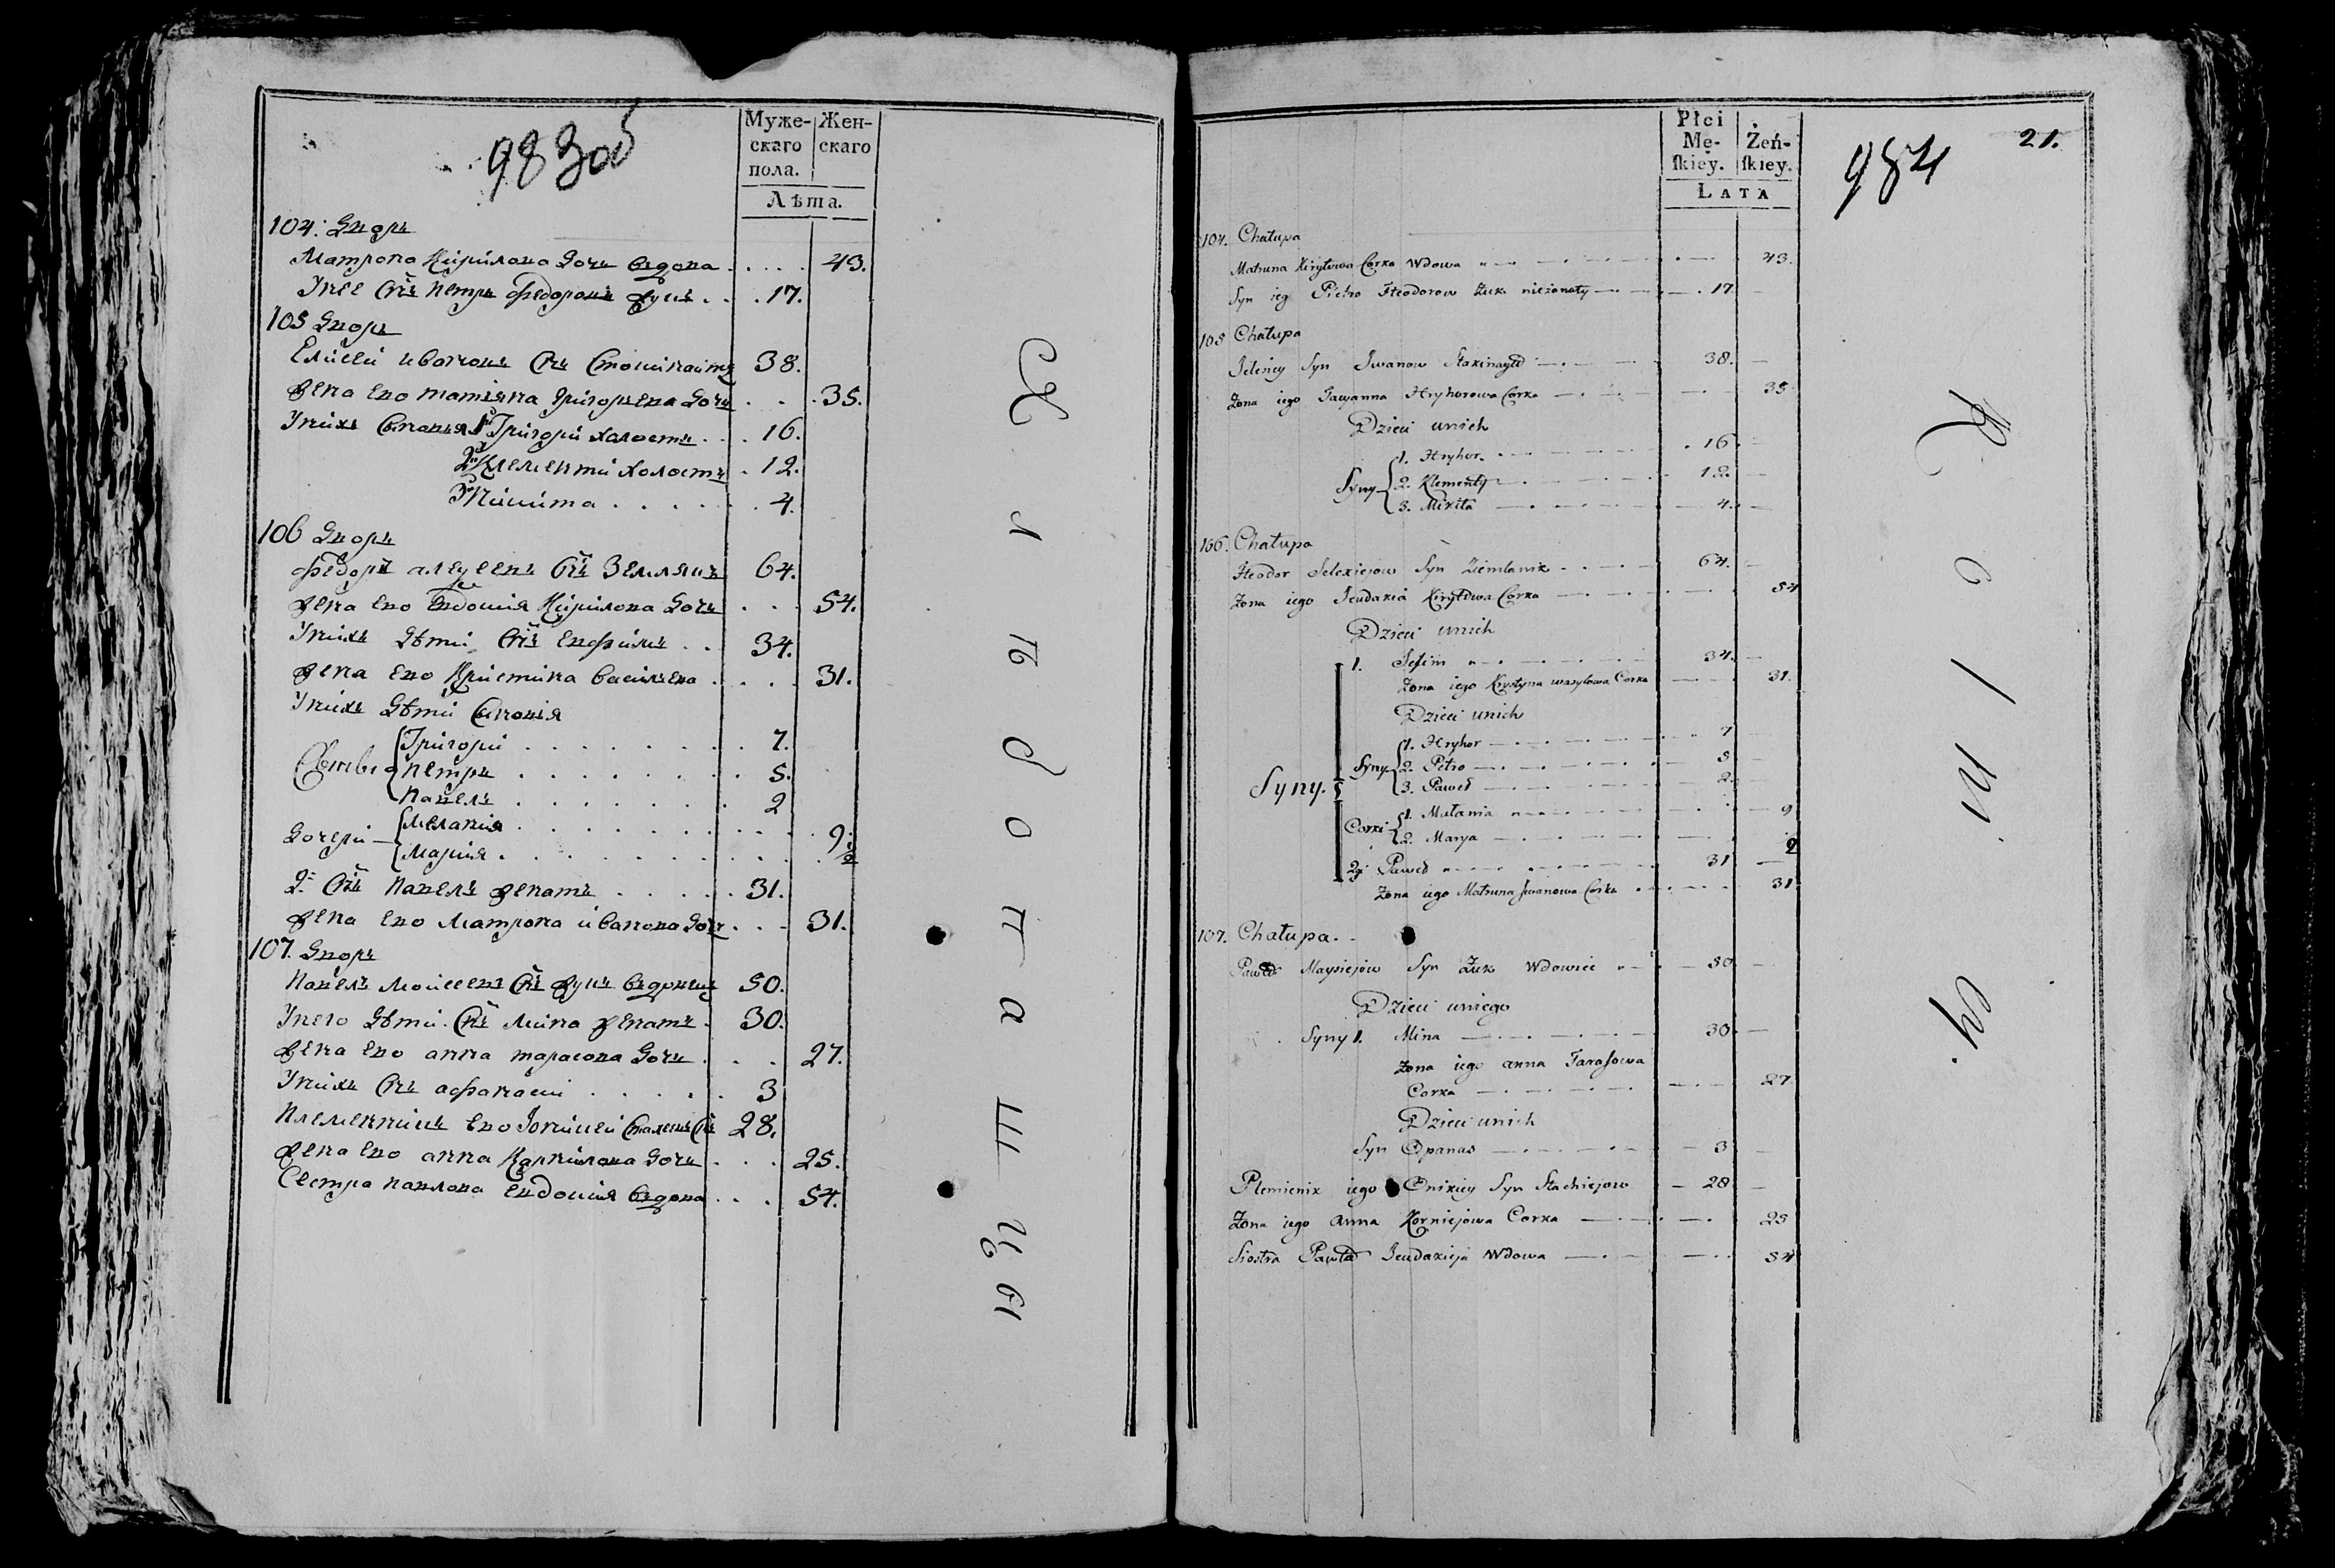 983об
Муже- Жен-
скаго скаго
пола.
Лѣта.
104. Дворъ
Матрона Кирилова дочь вдова . . . . 43.
Унее Снъ Петръ Федоровъ жукъ . . . 17.
105 Дворъ
Елисей Ивановъ Снъ 38.
жена ево татияна Григорьева дочь . . . 35.
Унихъ Сыновья 1й Григорий холостъ . . . 16.
2й Клементий холостъ . 12.
3й Никита . . . . . . 4.
106 Дворъ
Федоръ Снъ Землякъ 64.
жена ево Евдокия Кирилова дочь . . . 54.
Унихъ Дѣти Снъ Евфимъ . . 34.
жена ево Кристина Васильева . . . . 31.
Унихъ Дѣти Сыновия
Григорий . . . . . . . . 7.
Петръ . . . . . . . . 5.
Павелъ . . . . . . . 2
Мелания . . . . . . . . . . 9.
Дочери
Мария . . . . . . . . . . 2
2й Снъ Павелъ женатъ . . . . . 31.
жена ево Матрона Иванова дочь . . . 31.
107. Дворъ
Павелъ Моисеевъ Снъ жукъ вдовецъ 50.
Унего Дѣти. Снъ Мина женатъ . 30.
жена ево анна тарасова дочь . . . 27.
Унихъ Снъ афанасий . . . . . 3
Племенникъ ево 28.
жена ево анна дочь . . . 25.
Сестра павлова Евдокия вдова . . . 54.
Płci
Mę- Żeń-
ſkiey. ſkiey.
LATA
984
21.
104. Chałupa
Matruna Kiryłowa Corka Wdowa 43.
Syn iey Pietro Fteodorow Żuk nieżonaty 17
105 Chałupa
Jeleniey Syn Jwanow 38.
Zona iego Hryhorowa Corka 35
Dzieci unich
1. Hryhor. 16
Syny 2. Klementy 12
3. Mikita 4.
106. Chałupa
Fteodor Syn Ziemlanik 64.
Zona iego Jeudakia Kiryłowa Corka 54
Dzieci unich
1. Jefim 34.
Zona iego Krystyna wasylowa Corka 31.
Dzieci unich
1. Hryhor 7
Syny 2. Petro 5
Syny. 3. Paweł 2.
1. Małania 9
Corki
2. Marya 2
2gi Paweł 31
Zona iego Matruna Jwanowa Corka 31
107. Chałupa.
Paweł Syn Żuk Wdowiec 50
Dzieci uniego
Syny 1. Mina 30
Zona iego anna Taraſowa
Corka 27
Dzieci unich
Syn Opanas 3
Plemienik iego Onikiey Syn 28
Zona iego anna Korniejowa Corka 25
Siostra Pawła Jeudakieja Wdowa 54